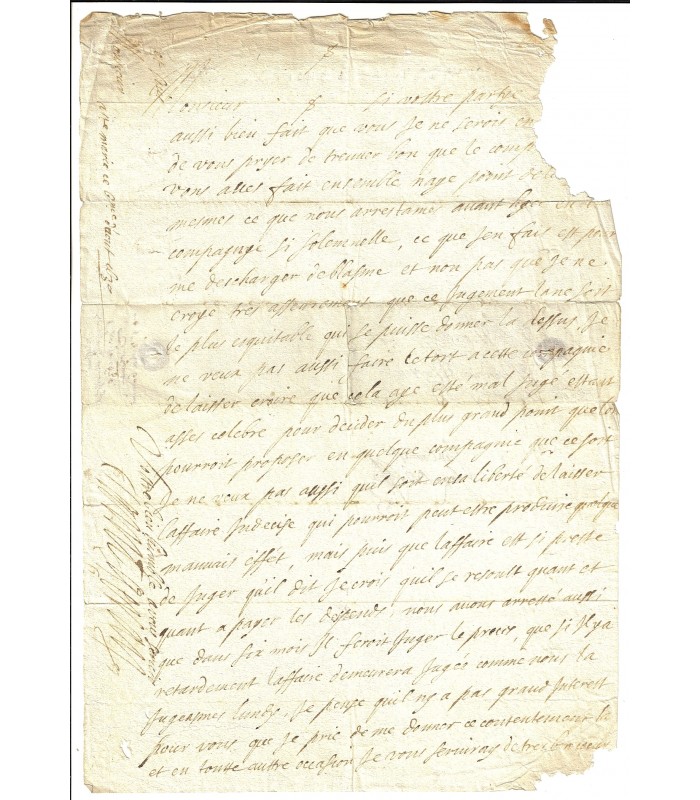 Monsieur si vostre partie
aussi bien fait que vous Je ne serois en
de vous pryer de treuver bon que le comp
vous aves fait ensemble naye point de
mesmes ce que nous arrestames avant hye en
compagnye si solemnelle, ce que Jen fais est pour
me descharger de blasme et non pas que Je ne
croye tres asseurement que ce Jugement la ne soit
le plus equitable qui se puisse donner la dessus, Je
ne veux pas aussi faire le tort a cette compagnie
de laisser croire que cela aye esté mal Jugé estant
asses celebre pour decider du plus grand point que lon
pourroit proposer en quelque compagnie que ce soit
Je ne veux pas aussi quil soit en sa liberté de laisser
laffaire Indecise qui pourroit peut estre produire quelque
mauvais effet, mais puis que laffaire est si preste
de Juger quil dit Je crois quil se resoult quant et
quant a payer les despends, nous avons arresté aussi
que dans six mois Il feroit Juger le proces, que si Il y a
retardement laffaire demeurera Jugée comme nous la
Jugeasmes lundy, Je pense quil ny a pas grand Interest
pour vous, que Je prie de me donner ce contentement la
et en toutte autre occasion Je vous serviray de tres bon cœur